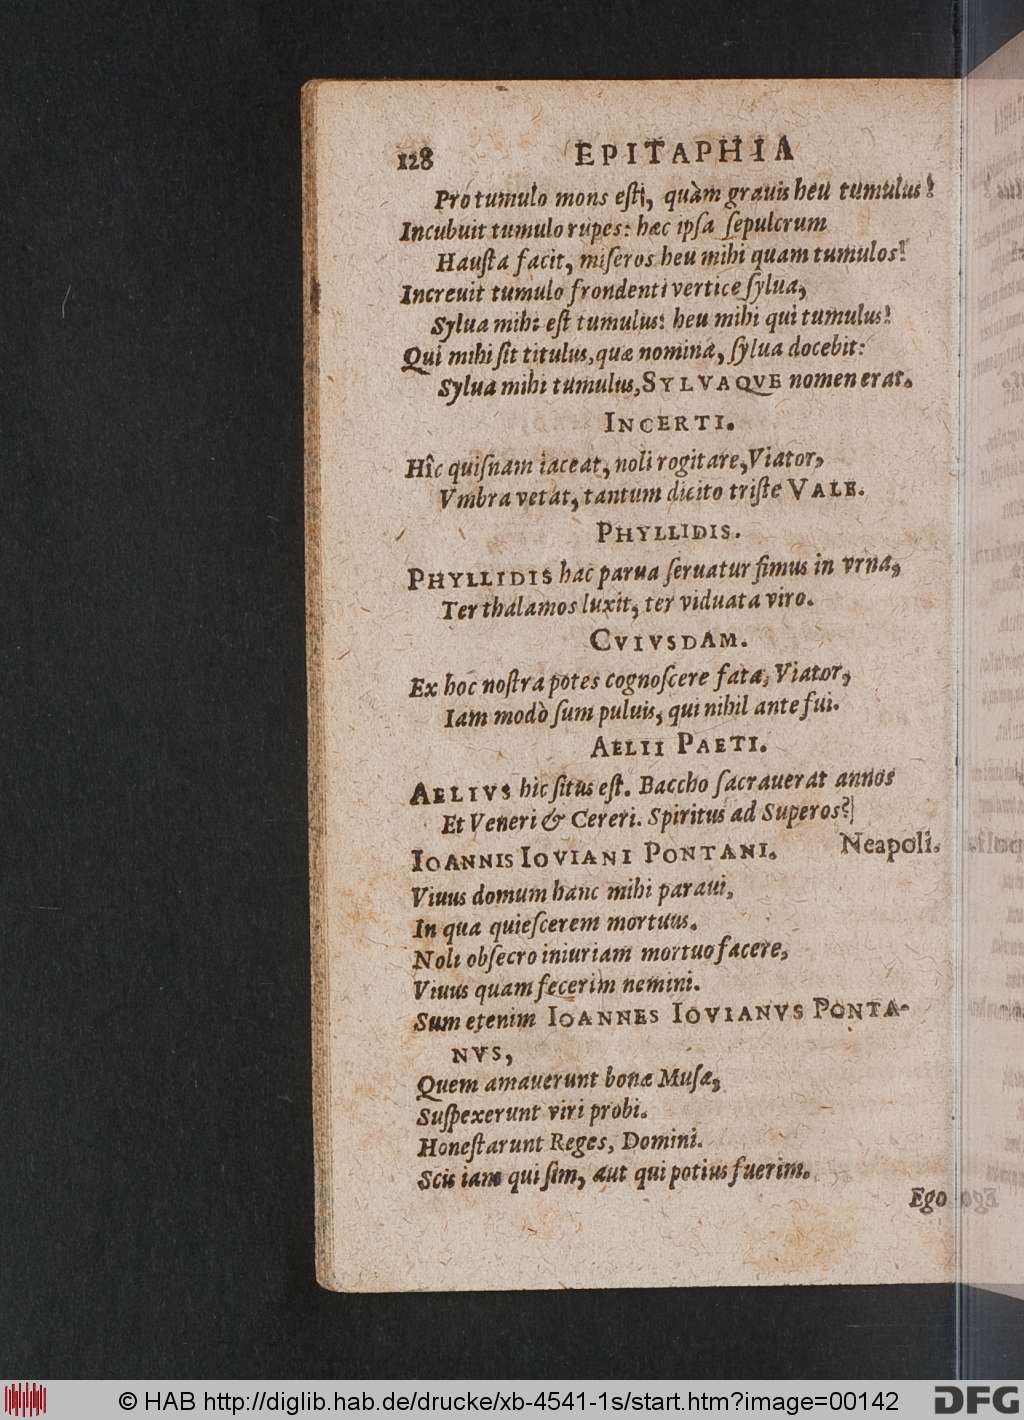 128 EPITAPHIA
Pro tumulo mons est, quàm grauis heu tumulus!
Incubuit tumulo rupes: hæc ipsa sepulcrum
Hausta facit, miseros heu mihi quam tumulos!
Increuit tumulo frondenti vertice sylua,
Sylua mihi est tumulus: heu mihi qui tumulus!
Qui mihi sit titulus, quæ nomina, sylua docebit:
Sylua mihi tumulus, SYLVAQVE nomen erat.
INCERTI.
Hîc quisnam iaceat, noli rogitare, Viator,
Vmbra vetat, tantum dicito triste VALE.
PHYLLIDIS.
PHYLLIDIS hac parua seruatur fimus in vrna,
Ter thalamos luxit, ter viduata viro.
CVIVSDAM.
Ex hoc nostra potes cognoscere fata, Viator,
Iam modò sum puluis, qui nihil ante fui.
AELII PAETI.
AELIVS hic situs est. Baccho sacrauerat annos
Et Veneri & Cereri. Spiritus ad Superos?
IOANNIS IOVIANI PONTANI. Neapoli.
Viuus domum hanc mihi paraui,
In qua quiescerem mortuus.
Noli obsecro iniuriam mortuo facere,
Viuus quam fecerim nemini.
Sum etenim IOANNES IOVIANVS PONTA-
NVS,
Quem amauerunt bonæ Musæ,
Suspexerunt viri probi.
Honestarunt Reges, Domini.
Scis iam qui sim, aut qui potius fuerim.
Ego
© HAB http://diglib.hab.de/drucke/xb-4541-1s/start.htm?image=00142
DFG